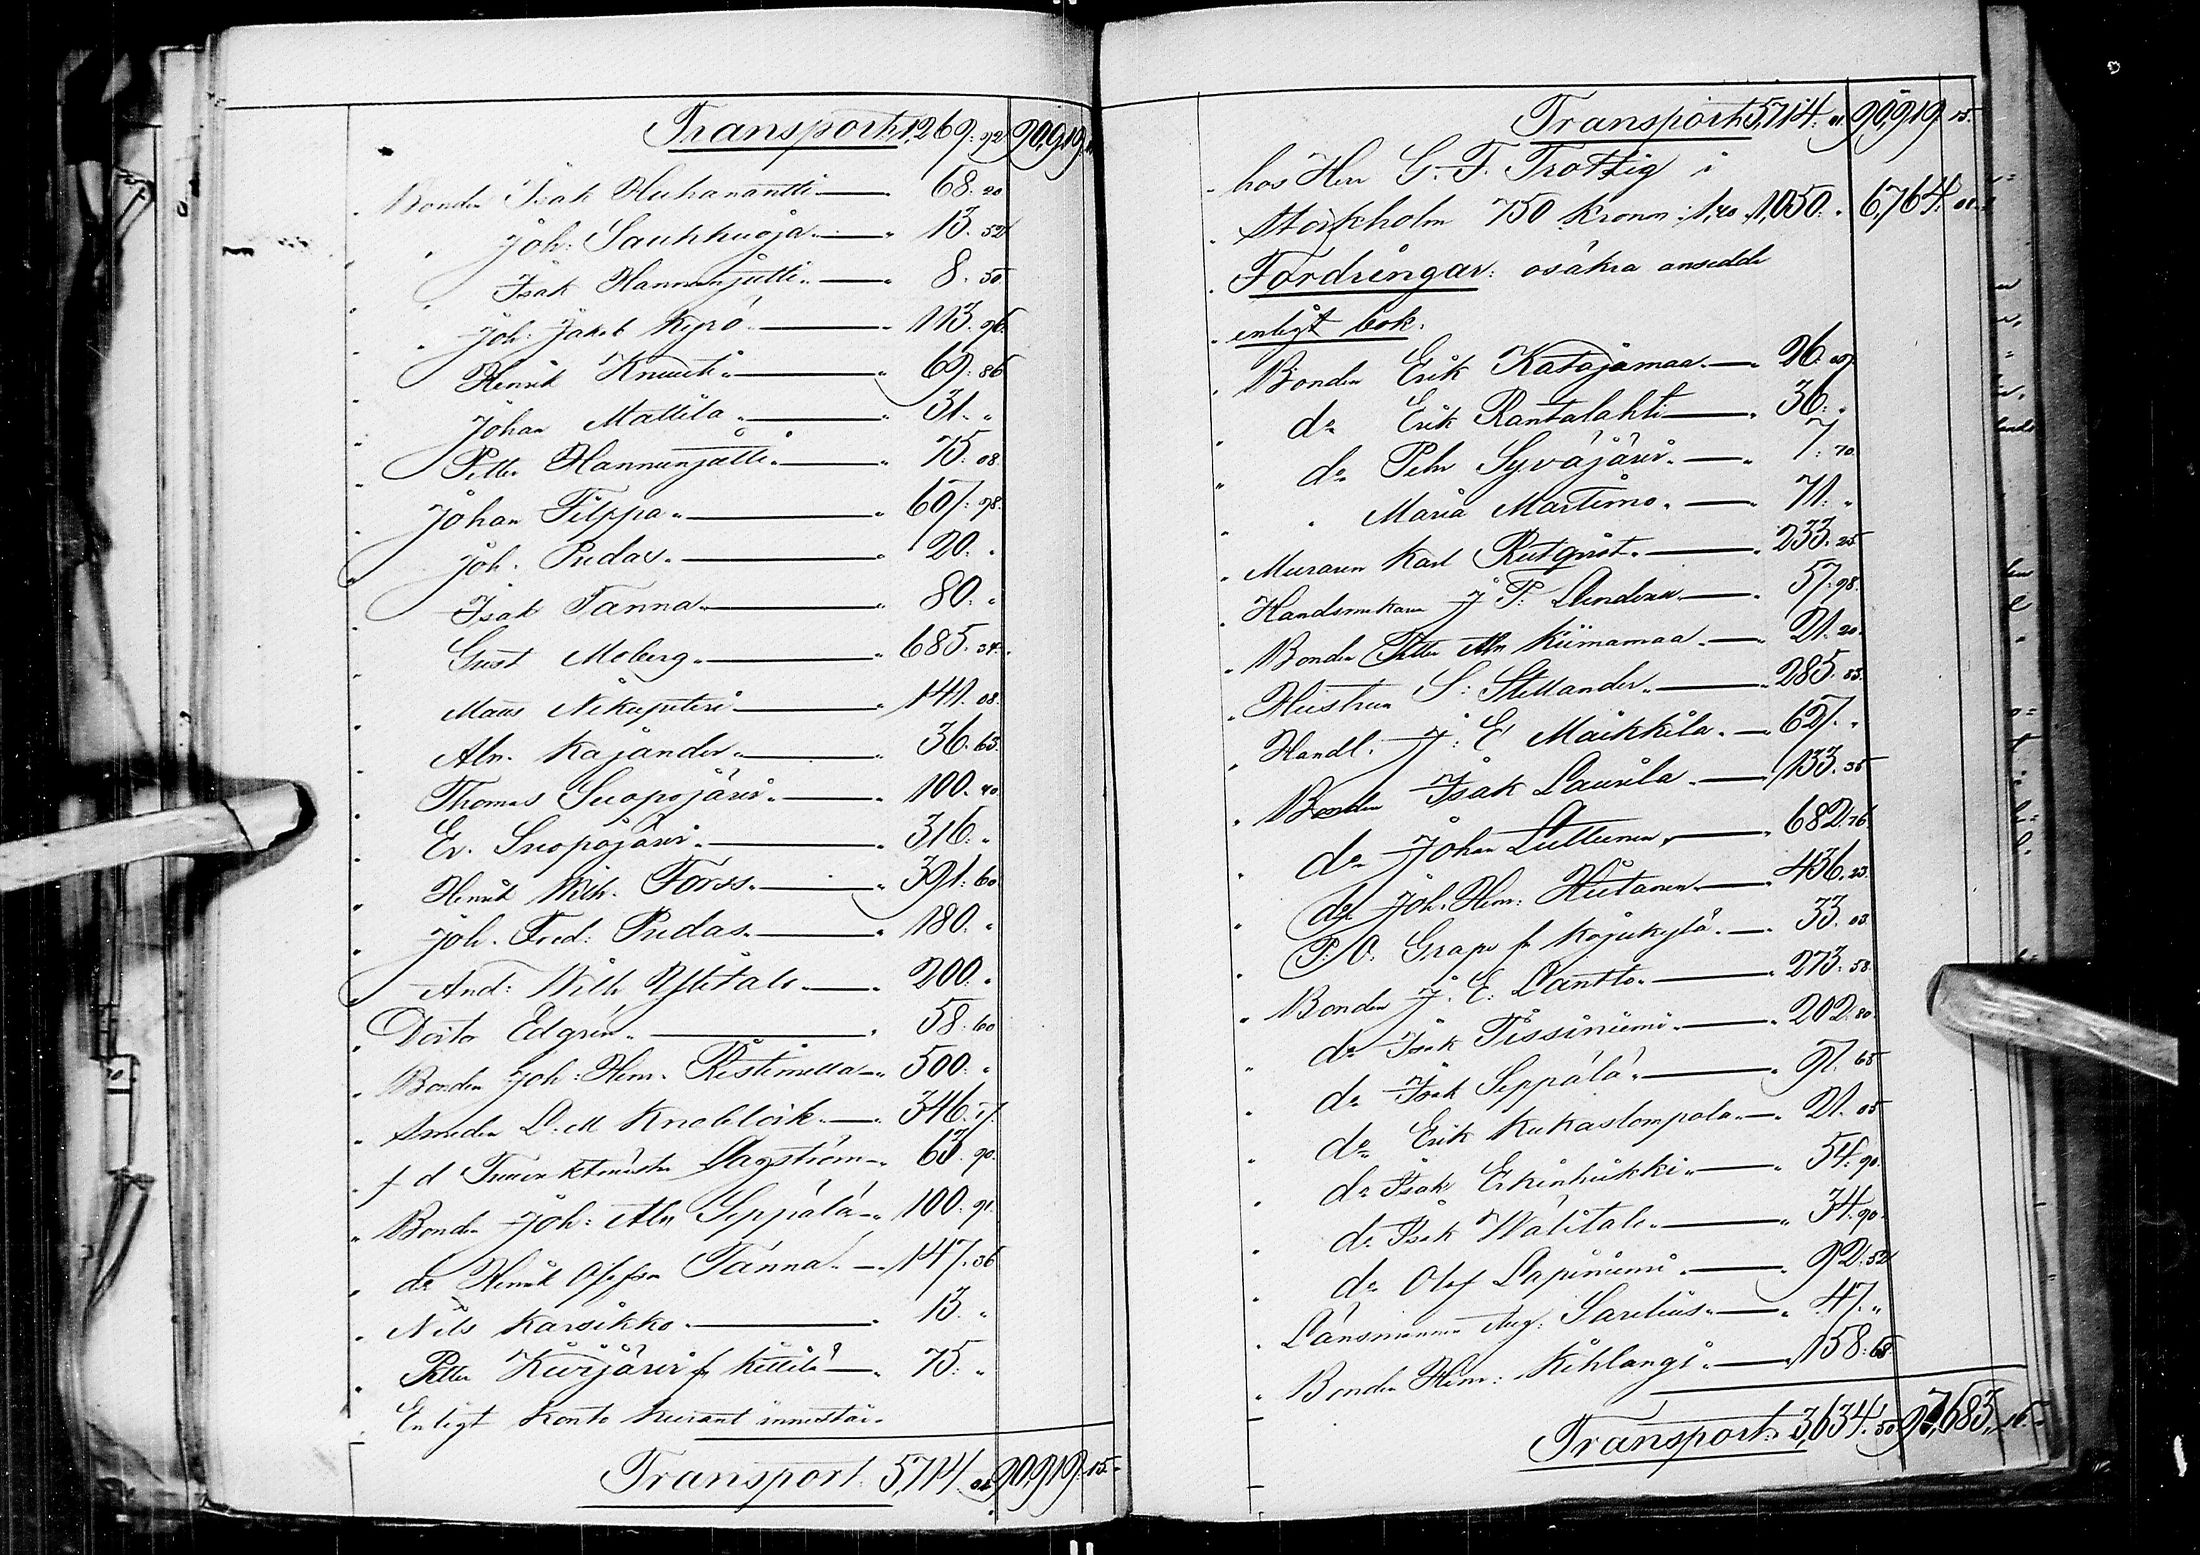 Transport 1,269. 92 90,919.
Bonden Isak Huhanantti 68. 20
" Joh: Saukkuoja 13. 52
" Isak Hannunjatti 8. 50
" Joh: Jakob Kyrö 113. 96
" Henrik Knuuti 69. 86
" Johan Mattila 31. "
" Petter Hannunjatti 75. 08
" Johan Filppa 607. 98
" Joh. Pudas 20. "
" Isak Tanna 80. "
" Gust Moberg 685. 34
" Mans Nikupeteri 141. 08
" Abr. Kajander 36. 63
" Thomas Suopojärvi 100. 40
" Er. Suopajärvi 316. "
" Henrik Wilh. Forss 391. 60
" Joh. Fred: Pudas 180. "
" And: Wilh Ylitalo 200. "
" Doctor Edgrén 58. 60
" Bonden Joh: Hem. Ristimella 500. "
" Smeden D. M Knoblock 346. 57
" f d Lagström 63. 90
" Bonden Joh: Abr Seppälä 100. 91
" do Henrik Olofsson Tanna 147. 36
" Nils Karsikko 13. "
" Petter Kivijärvi fr Kittilä 75. "
Enligt Konto Kurant innestår
Transport 5,714. 01 90,919. 15
Transport 5,714. 01 90,919. 15
" hos Herr G. F. Trottzig i
" Stockholm 750 Kronor 1,40 1,050. " 6,764. 01
" Fordringar: osäkra ansedde
" enligt bok.
" Bonden Erik Katajamaa 26. 09
" do Erik Rantalahti 36. "
" do Pehr Syväjärvi 7. 70
" " Maria Martimo 71. "
" Muraren Karl Rutqvist 233. 25
" Handsmakare J P: 57. 98
" Bonden Petter Abr Kiimamaa 21. 20
" Hustrun S: Stellander 285. 83
" Handl. J: E Maikkila 627. "
" Bonden Isak Laurila 133. 35
" do Johan Luttunen 682. 76
" do Joh. Hem: Hietanen 436. 23
" P. O. Grape fr Kojukylä 33. 03
" Bonden J. E. Lantto 273. 58
" do Isak Tissiniemi 202. 80
" do Isak Seppälä 91. 65
" do Erik Kukaslompolo 21. 05
" do Isak Erkinheikki 54. 90
" do Isak Wälitalo 34. 90
" do Olof Lapiniemi 92. 52
" Länsmannen Aug: Sarelius 47. "
" Bonden Hem: Kihlangi 158. 68
Transport 3,634. 50 97,683. 16